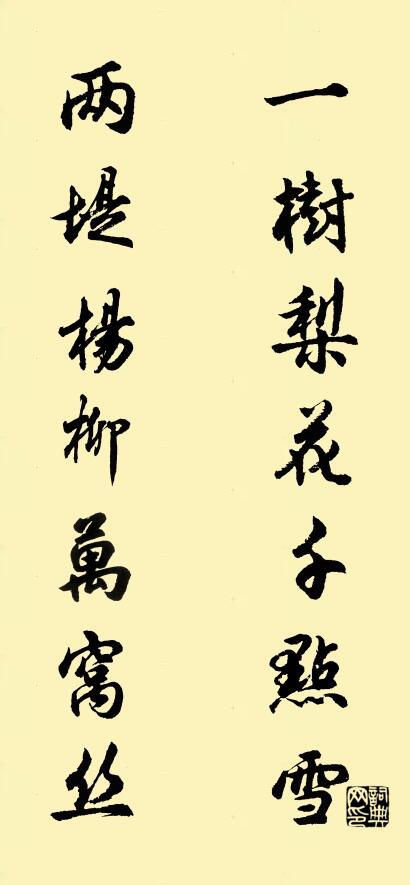 一樹梨花千點雪
两堤楊柳萬窩丝
詞典网印